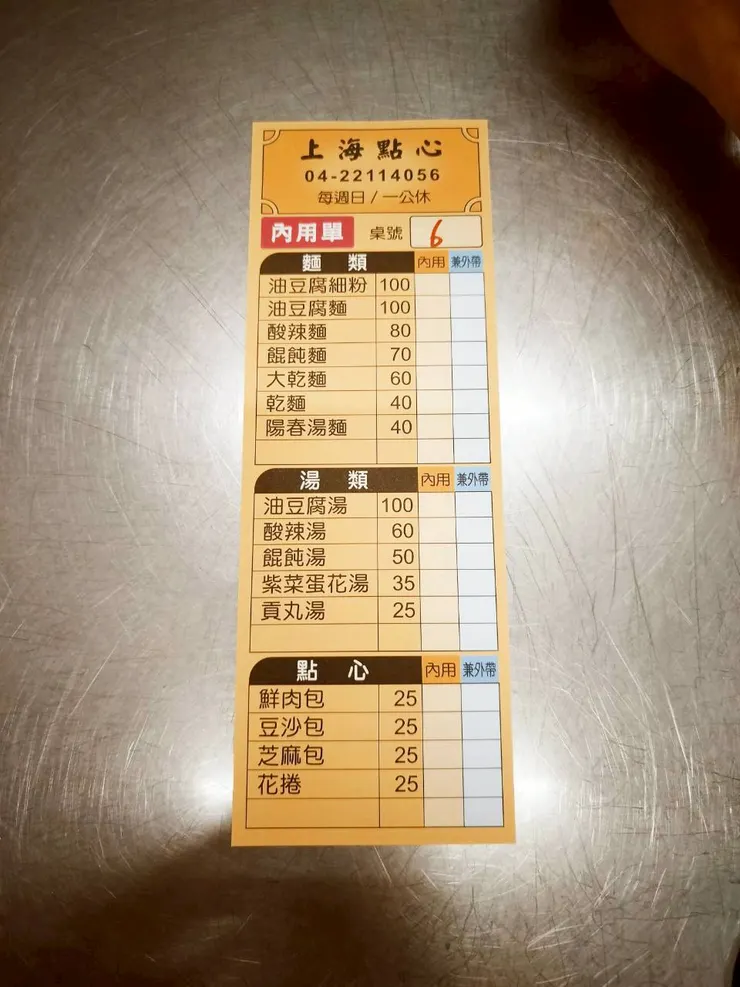 上海點心
04-22114056
每週日/一公休
內用單 桌號 6
麵類 內用 兼外帶
油豆腐細粉 100
油豆腐麵 100
酸辣麵 80
餛飩麵 70
大乾麵 60
乾麵 40
陽春湯麵 40
湯類 內用 兼外帶
油豆腐湯 100
酸辣湯 60
餛飩湯 50
紫菜蛋花湯 35
貢丸湯 25
點心 內用 兼外帶
鮮肉包 25
豆沙包 25
芝麻包 25
花捲 25